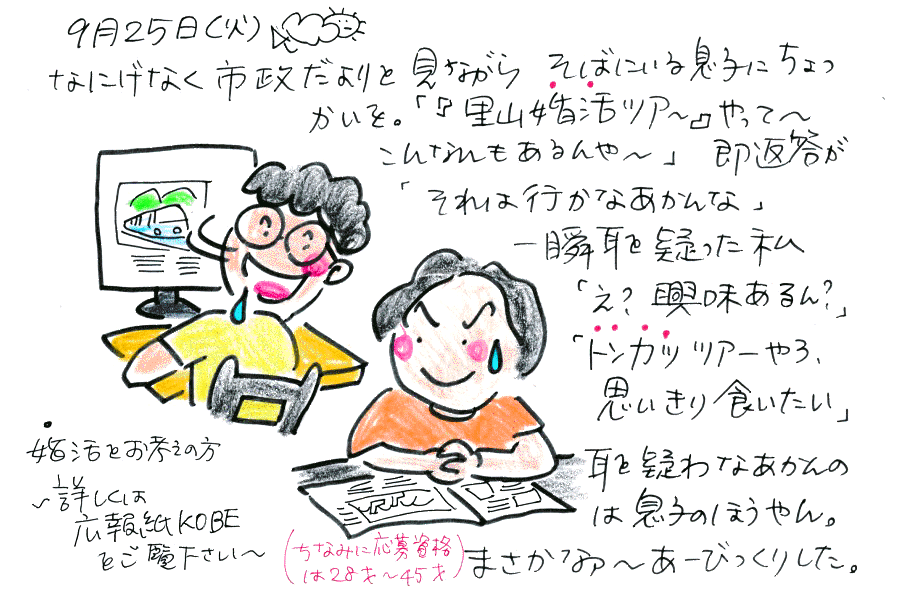 9月25日(火)
なにげなく市政だよりを見ながらそばにいる息子にちょっ
かいを。「『里山婚活ツアー』やって〜
こんなんもあるんや〜」 即返答が
「それは行かなあかんな」
一瞬耳を疑った私
「え?興味あるん?」
「トンカツツアーやろ、
思いきり食いたい」
耳を疑わなあかんの
は息子のほうやん。
まさかなァ〜あーびっくりした。
婚活をお考えの方
〜詳しくは
広報紙KOBE
をご覧下さい〜
(ちなみに応募資格
は28才〜45才)